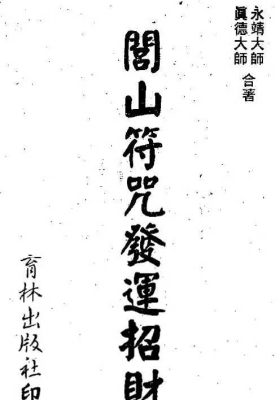 永靖大師
眞德大師
合著
閭山符咒發運招財
育林出版社印